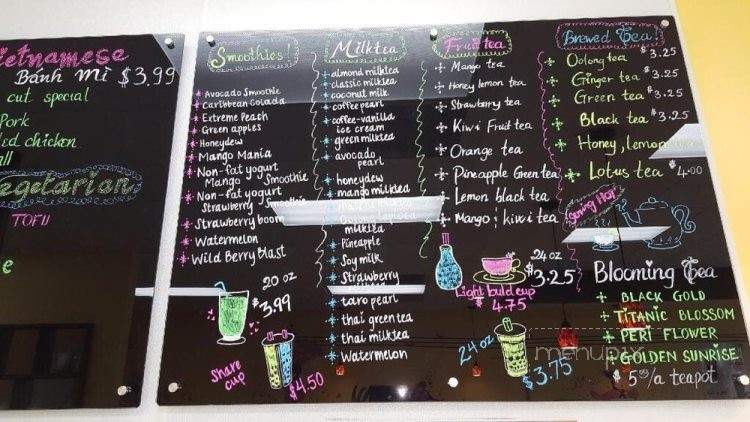 Vietnamese
Bánh Mì $3.99
cut special
Pork
ed chicken
all
egetarian
TOFU
e
Smoothies!
Avocado Smoothie
Caribbean Colada
Extreme Peach
Green apples
Honeydew
Mango Mania
Non-fat yogurt
Mango Smoothie
Non-fat yogurt
Strawberry Smoothie
Strawberry boom
Watermelon
Wild Berry Blast
20 oz
$3.99
Share
cup
$4.50
Milktea
almond milktea
classic milktea
coconut milk
coffee pearl
coffee-vanilla
ice cream
green milktea
avocado
pearl
honeydew
mango milktea
Oolong tapioca
milktea
Pineapple
Soy milk
Strawberry
milktea
taro pearl
thai green tea
thai milktea
Watermelon
Fruit tea
Mango tea
Honey lemon tea
Strawberry tea
Kiwi Fruit tea
Orange tea
Pineapple Green tea
Lemon black tea
Mango kiwi tea
24 oz
$3.25
Light buldeup
$4.75
24 oz
$3.75
Brewed Tea
Oolong tea $3.25
Ginger tea $3.25
Green tea $3.25
Black tea $3.25
Honey, lemon
Lotus tea $4.00
Serving HOT
Blooming Tea
BLACK GOLD
TITANIC BLOSSOM
PERI FLOWER
GOLDEN SUNRISE
$5.00/a teapot
menupix